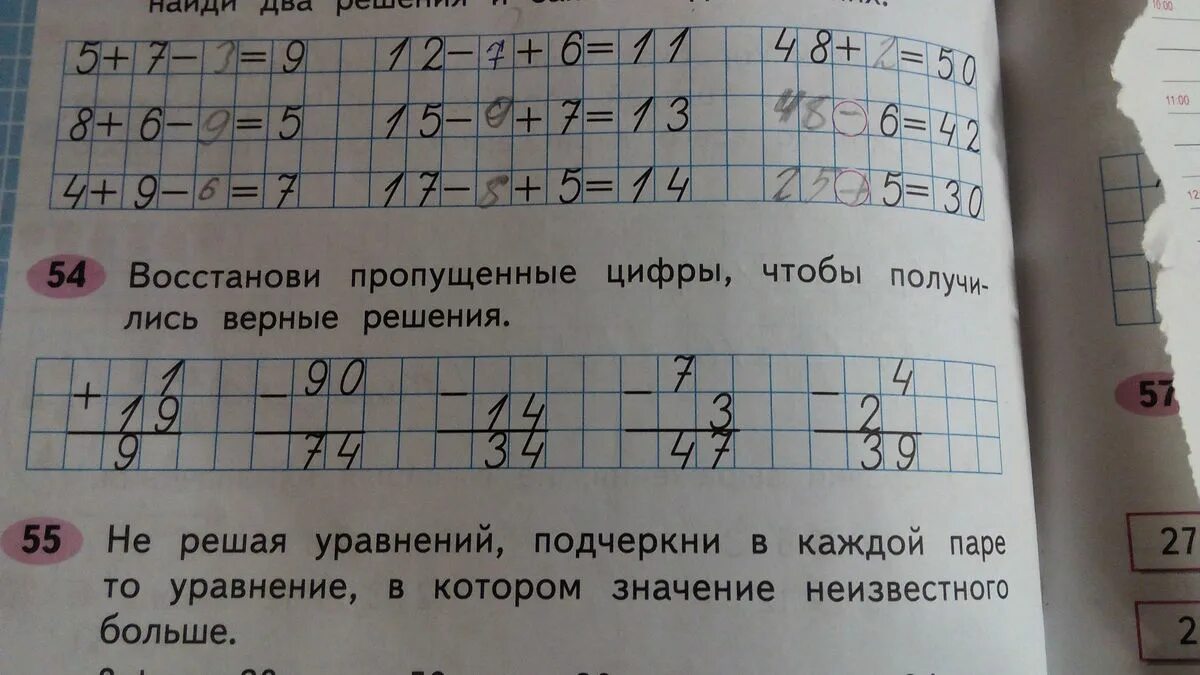 найди два решения и
5+7-3=9 12-7+6=11 48+2=50
8+6-9=5 15-9+7=13 48-6=42
4+9-6=7 17-8+5=14 25+5=30
54 Восстанови пропущенные цифры, чтобы получи-
лись верные решения.
+ 1 - 90 - - 7 - 4
19 14 3 2
9 74 34 47 39
55 Не решая уравнений, подчеркни в каждой паре
то уравнение, в котором значение неизвестного
больше.
10:00
11:00
12
57
27
2